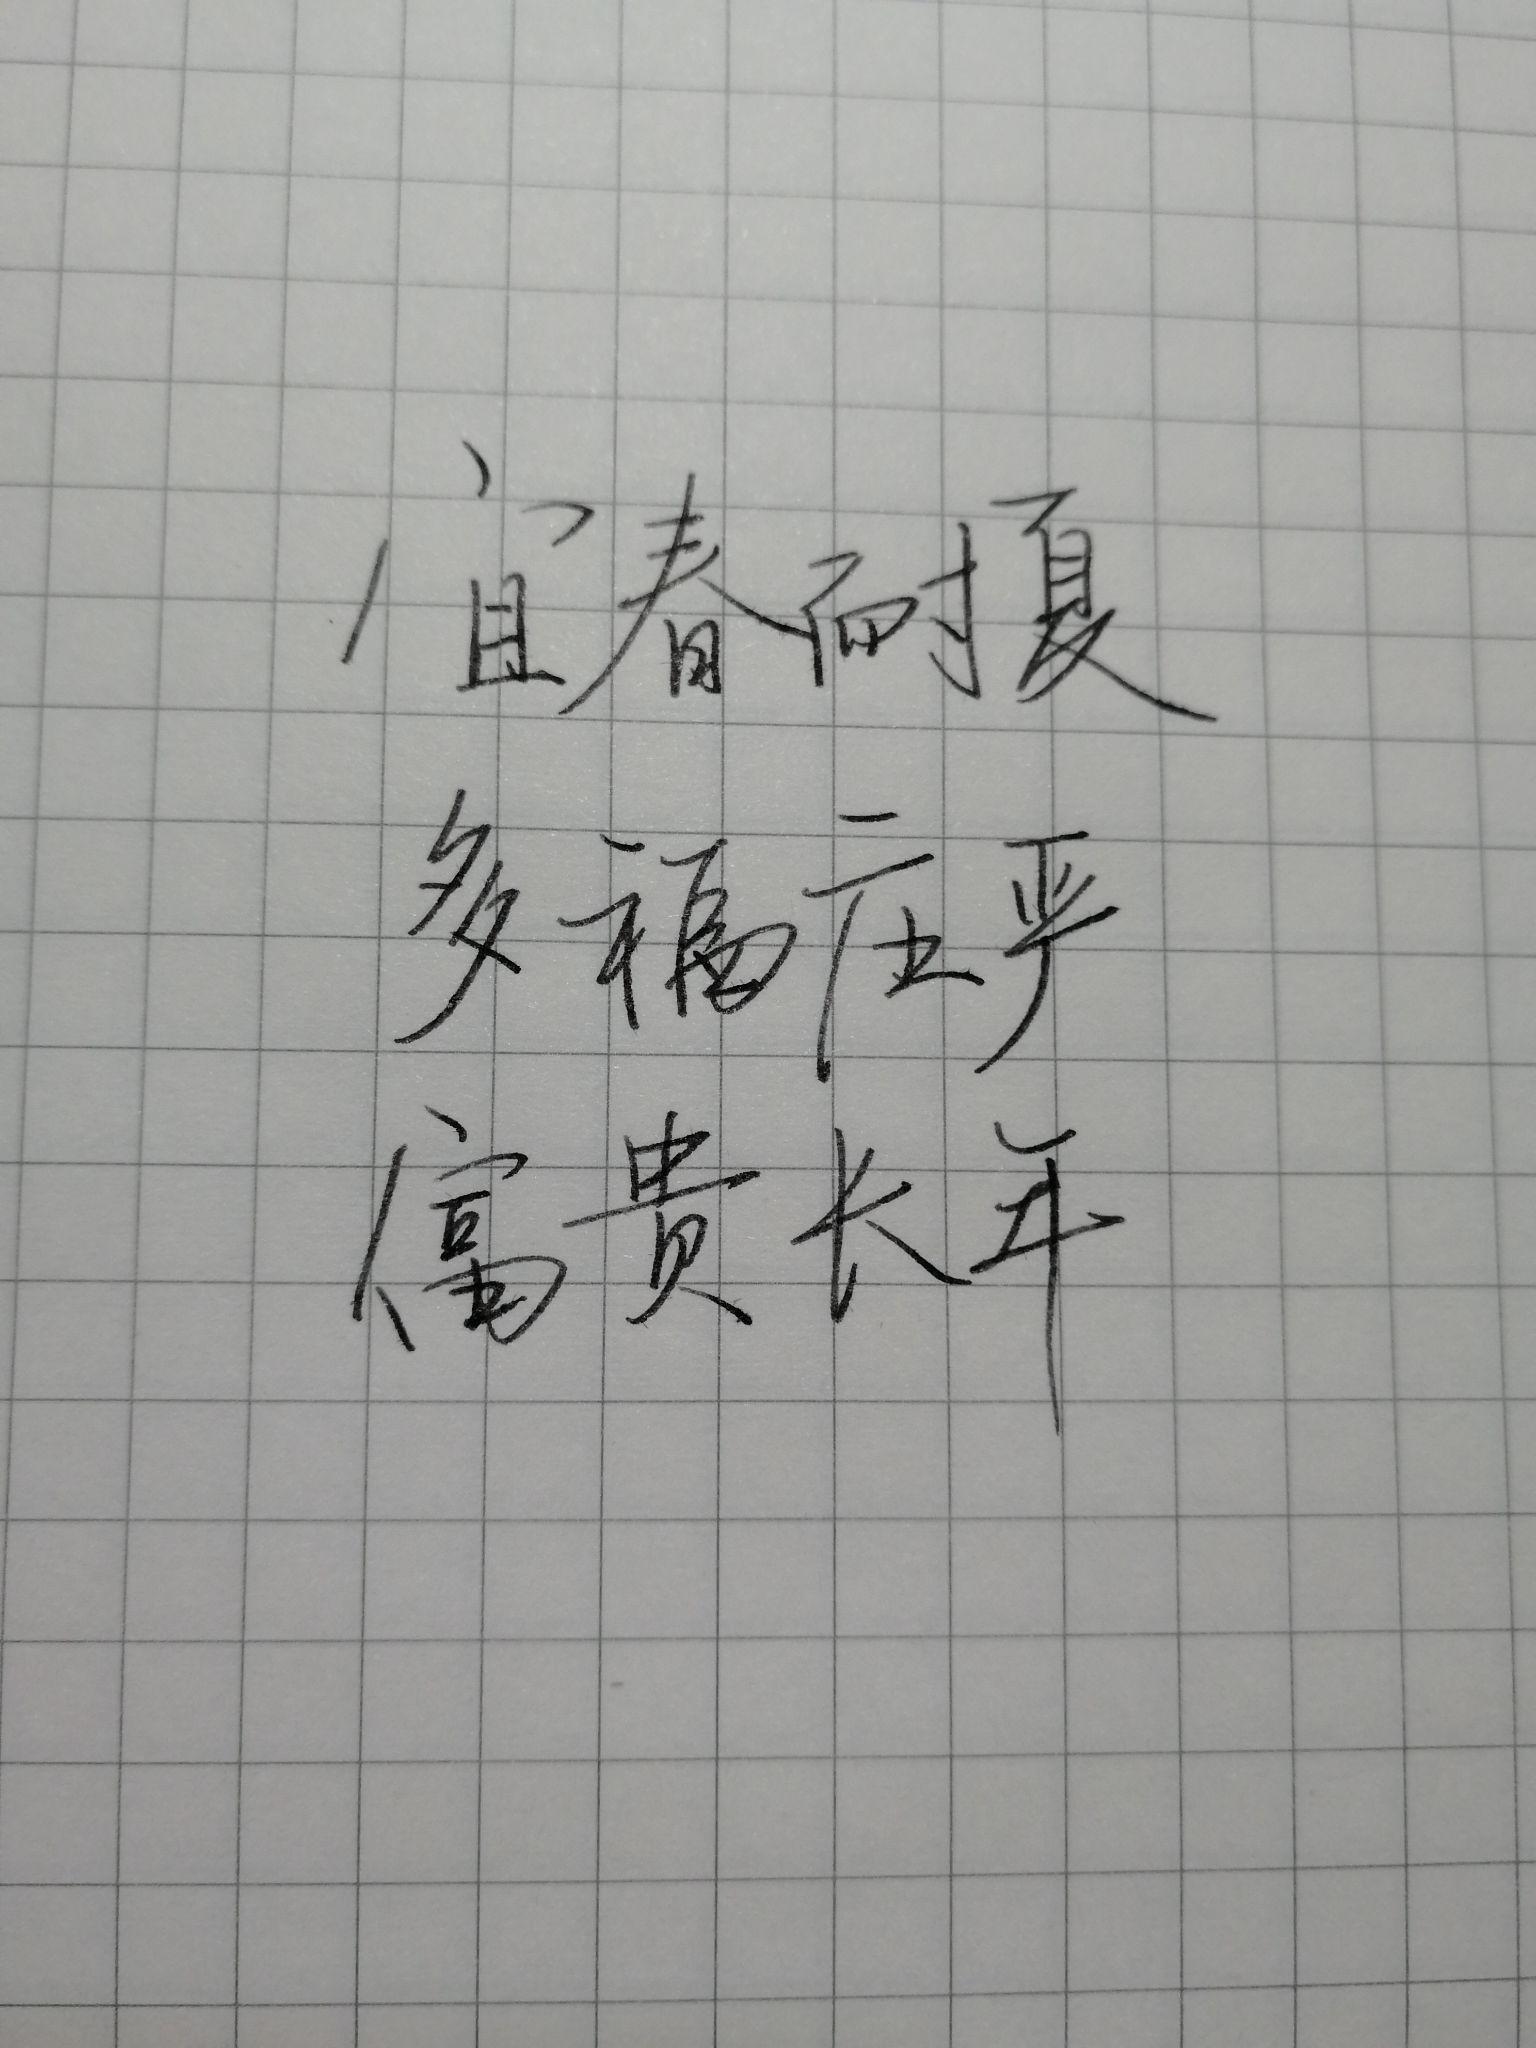 宜春耐夏
多福庄严
富贵长年